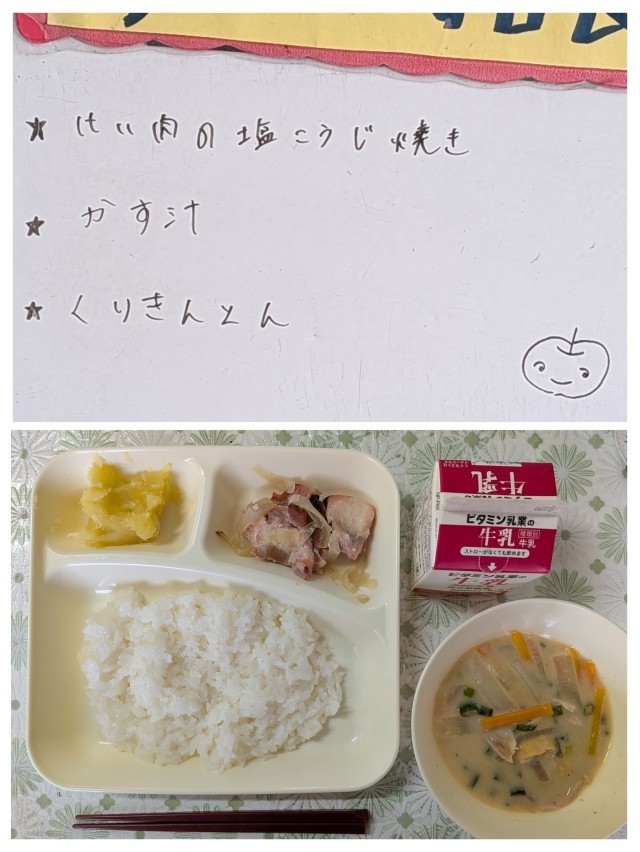 ★ けい肉の塩こうじ焼き
★ かす汁
★ くりきんとん
牛乳
ビタミン乳業の
牛乳 種類別 牛乳
ストローがなくても飲めます
ビタミン乳業の
牛乳